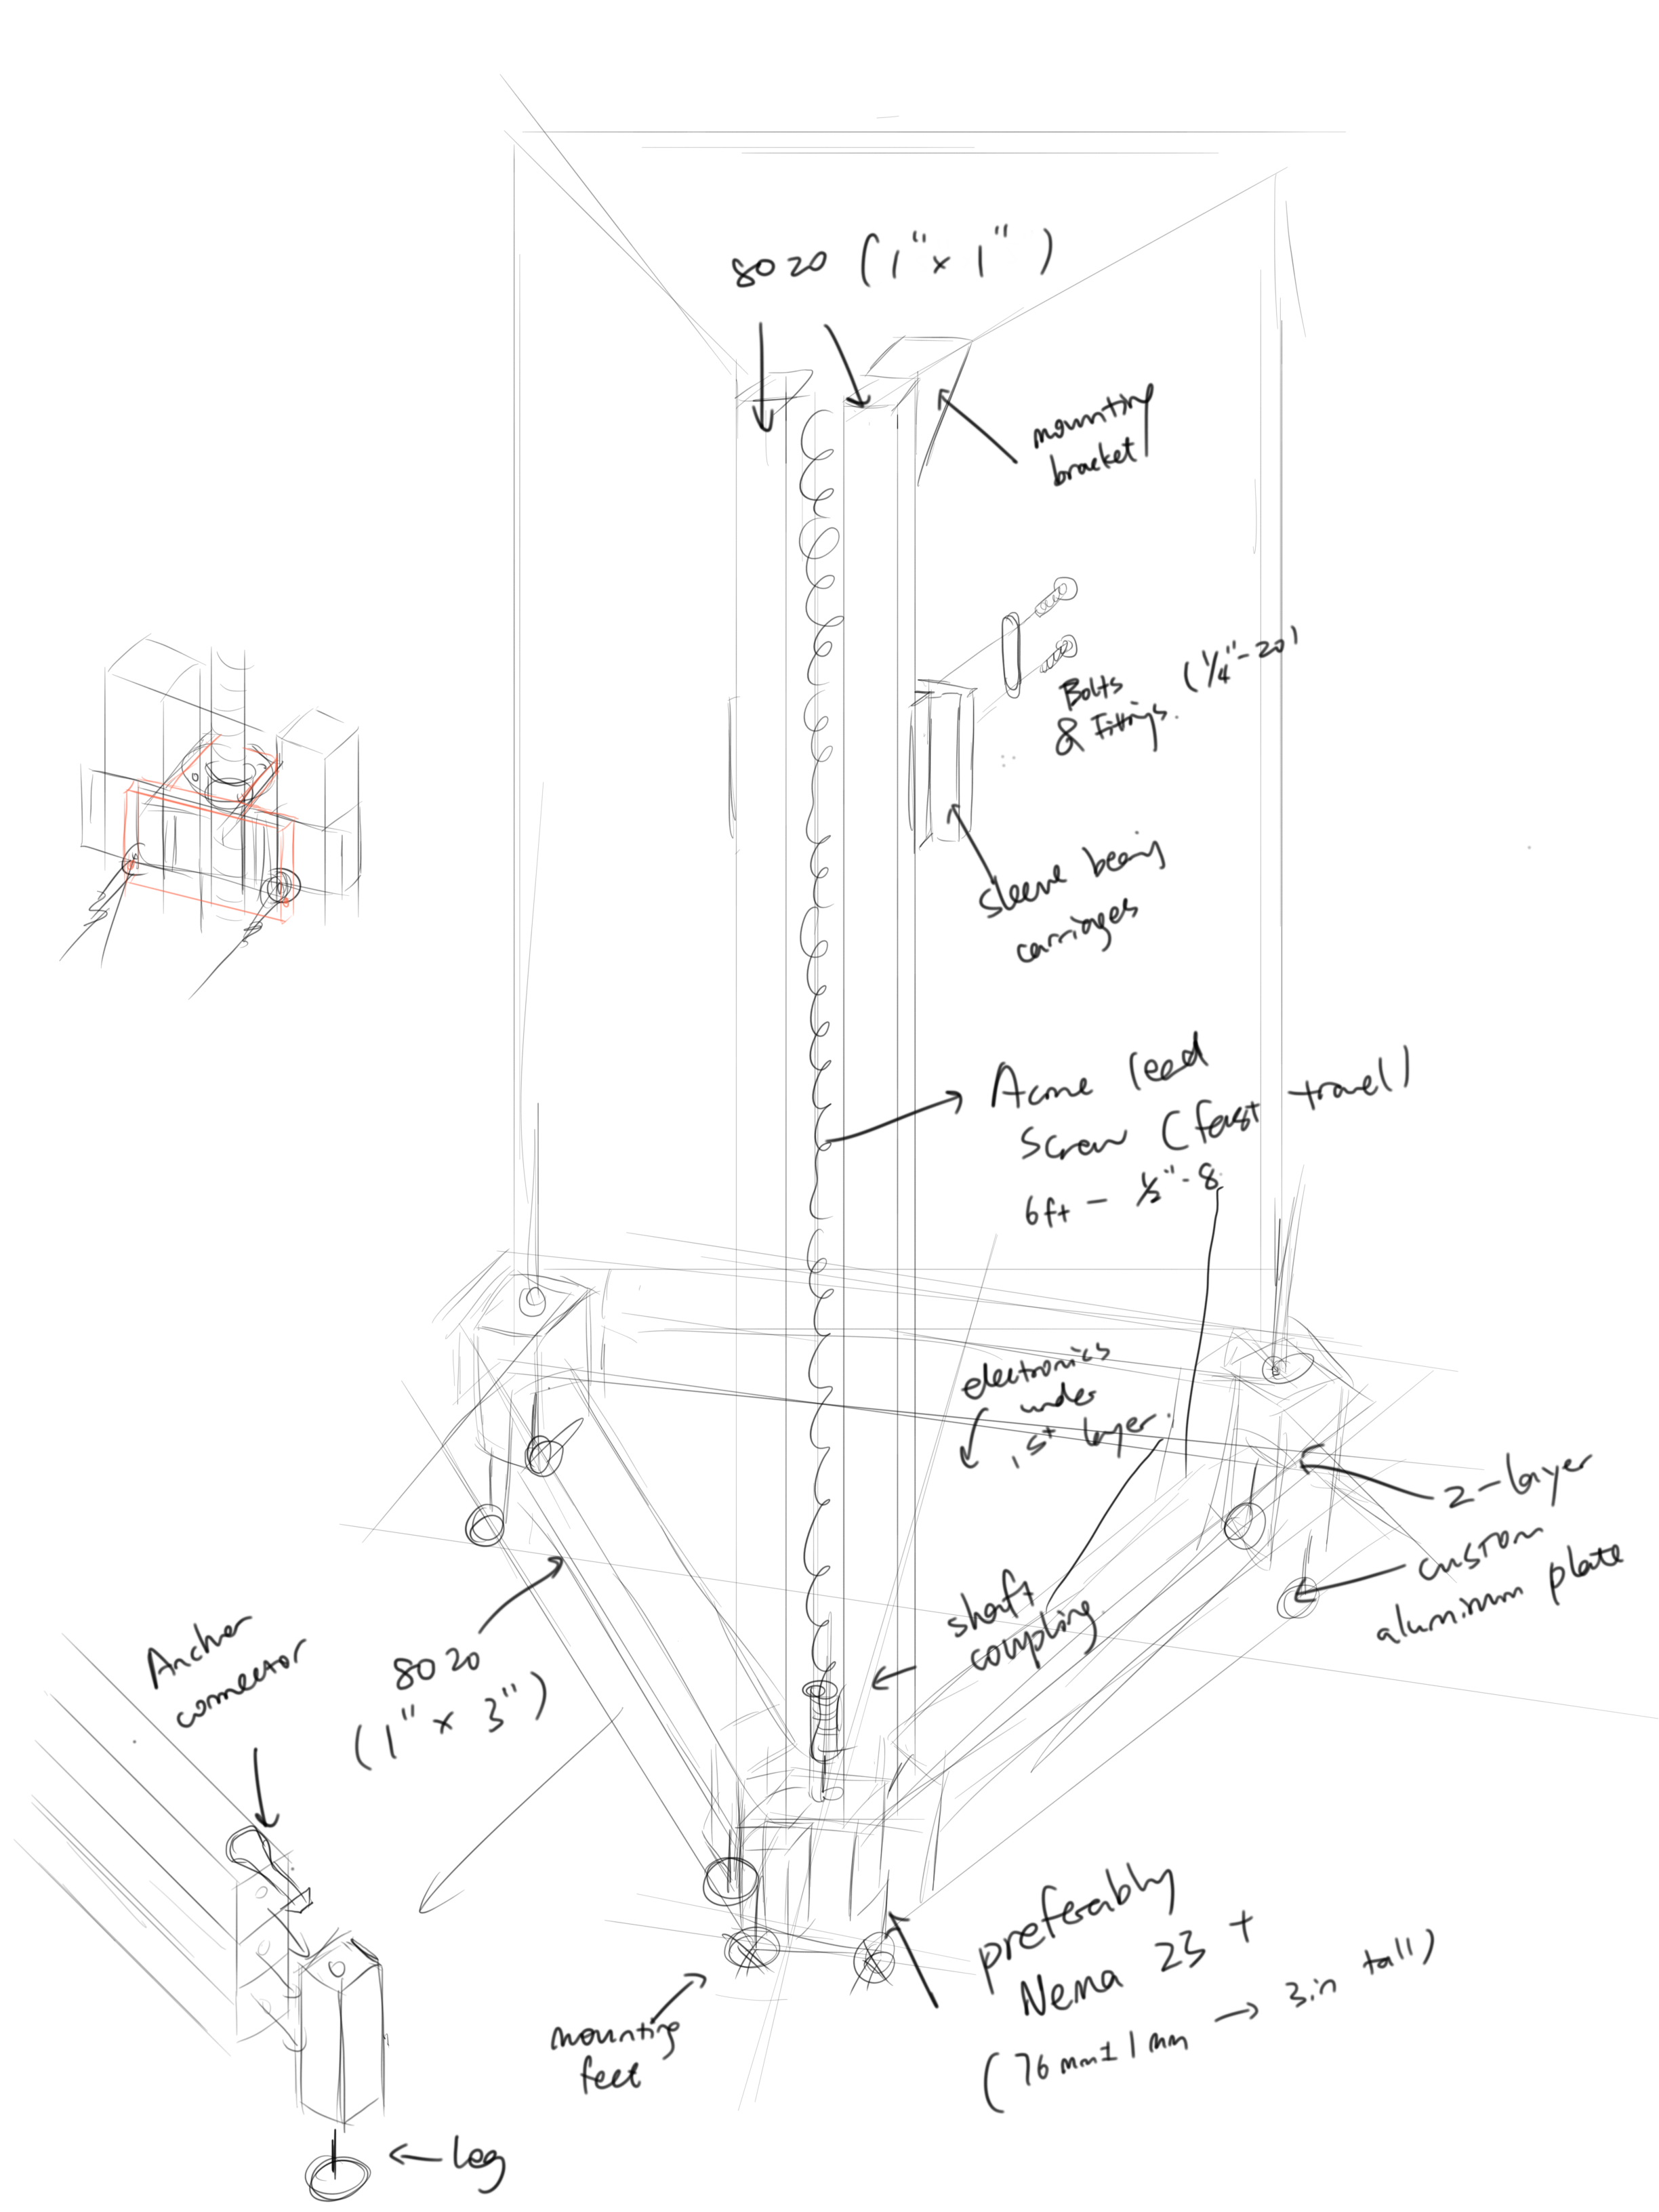 8020 (1" x 1")
mounting
bracket
Bolts
& Fittings. (1/4"-20)
sleeve bearing
carriages
Acme lead
screw (fast travel)
6ft - 1/2"-8
electronics
under
1st layer.
2-layer
custom
aluminum plate
shaft
coupling
Anchor
connector
8020
(1" x 3")
preferably
Nema 23 +
(76mm±1mm → 3in tall)
mounting
feet
← Leg